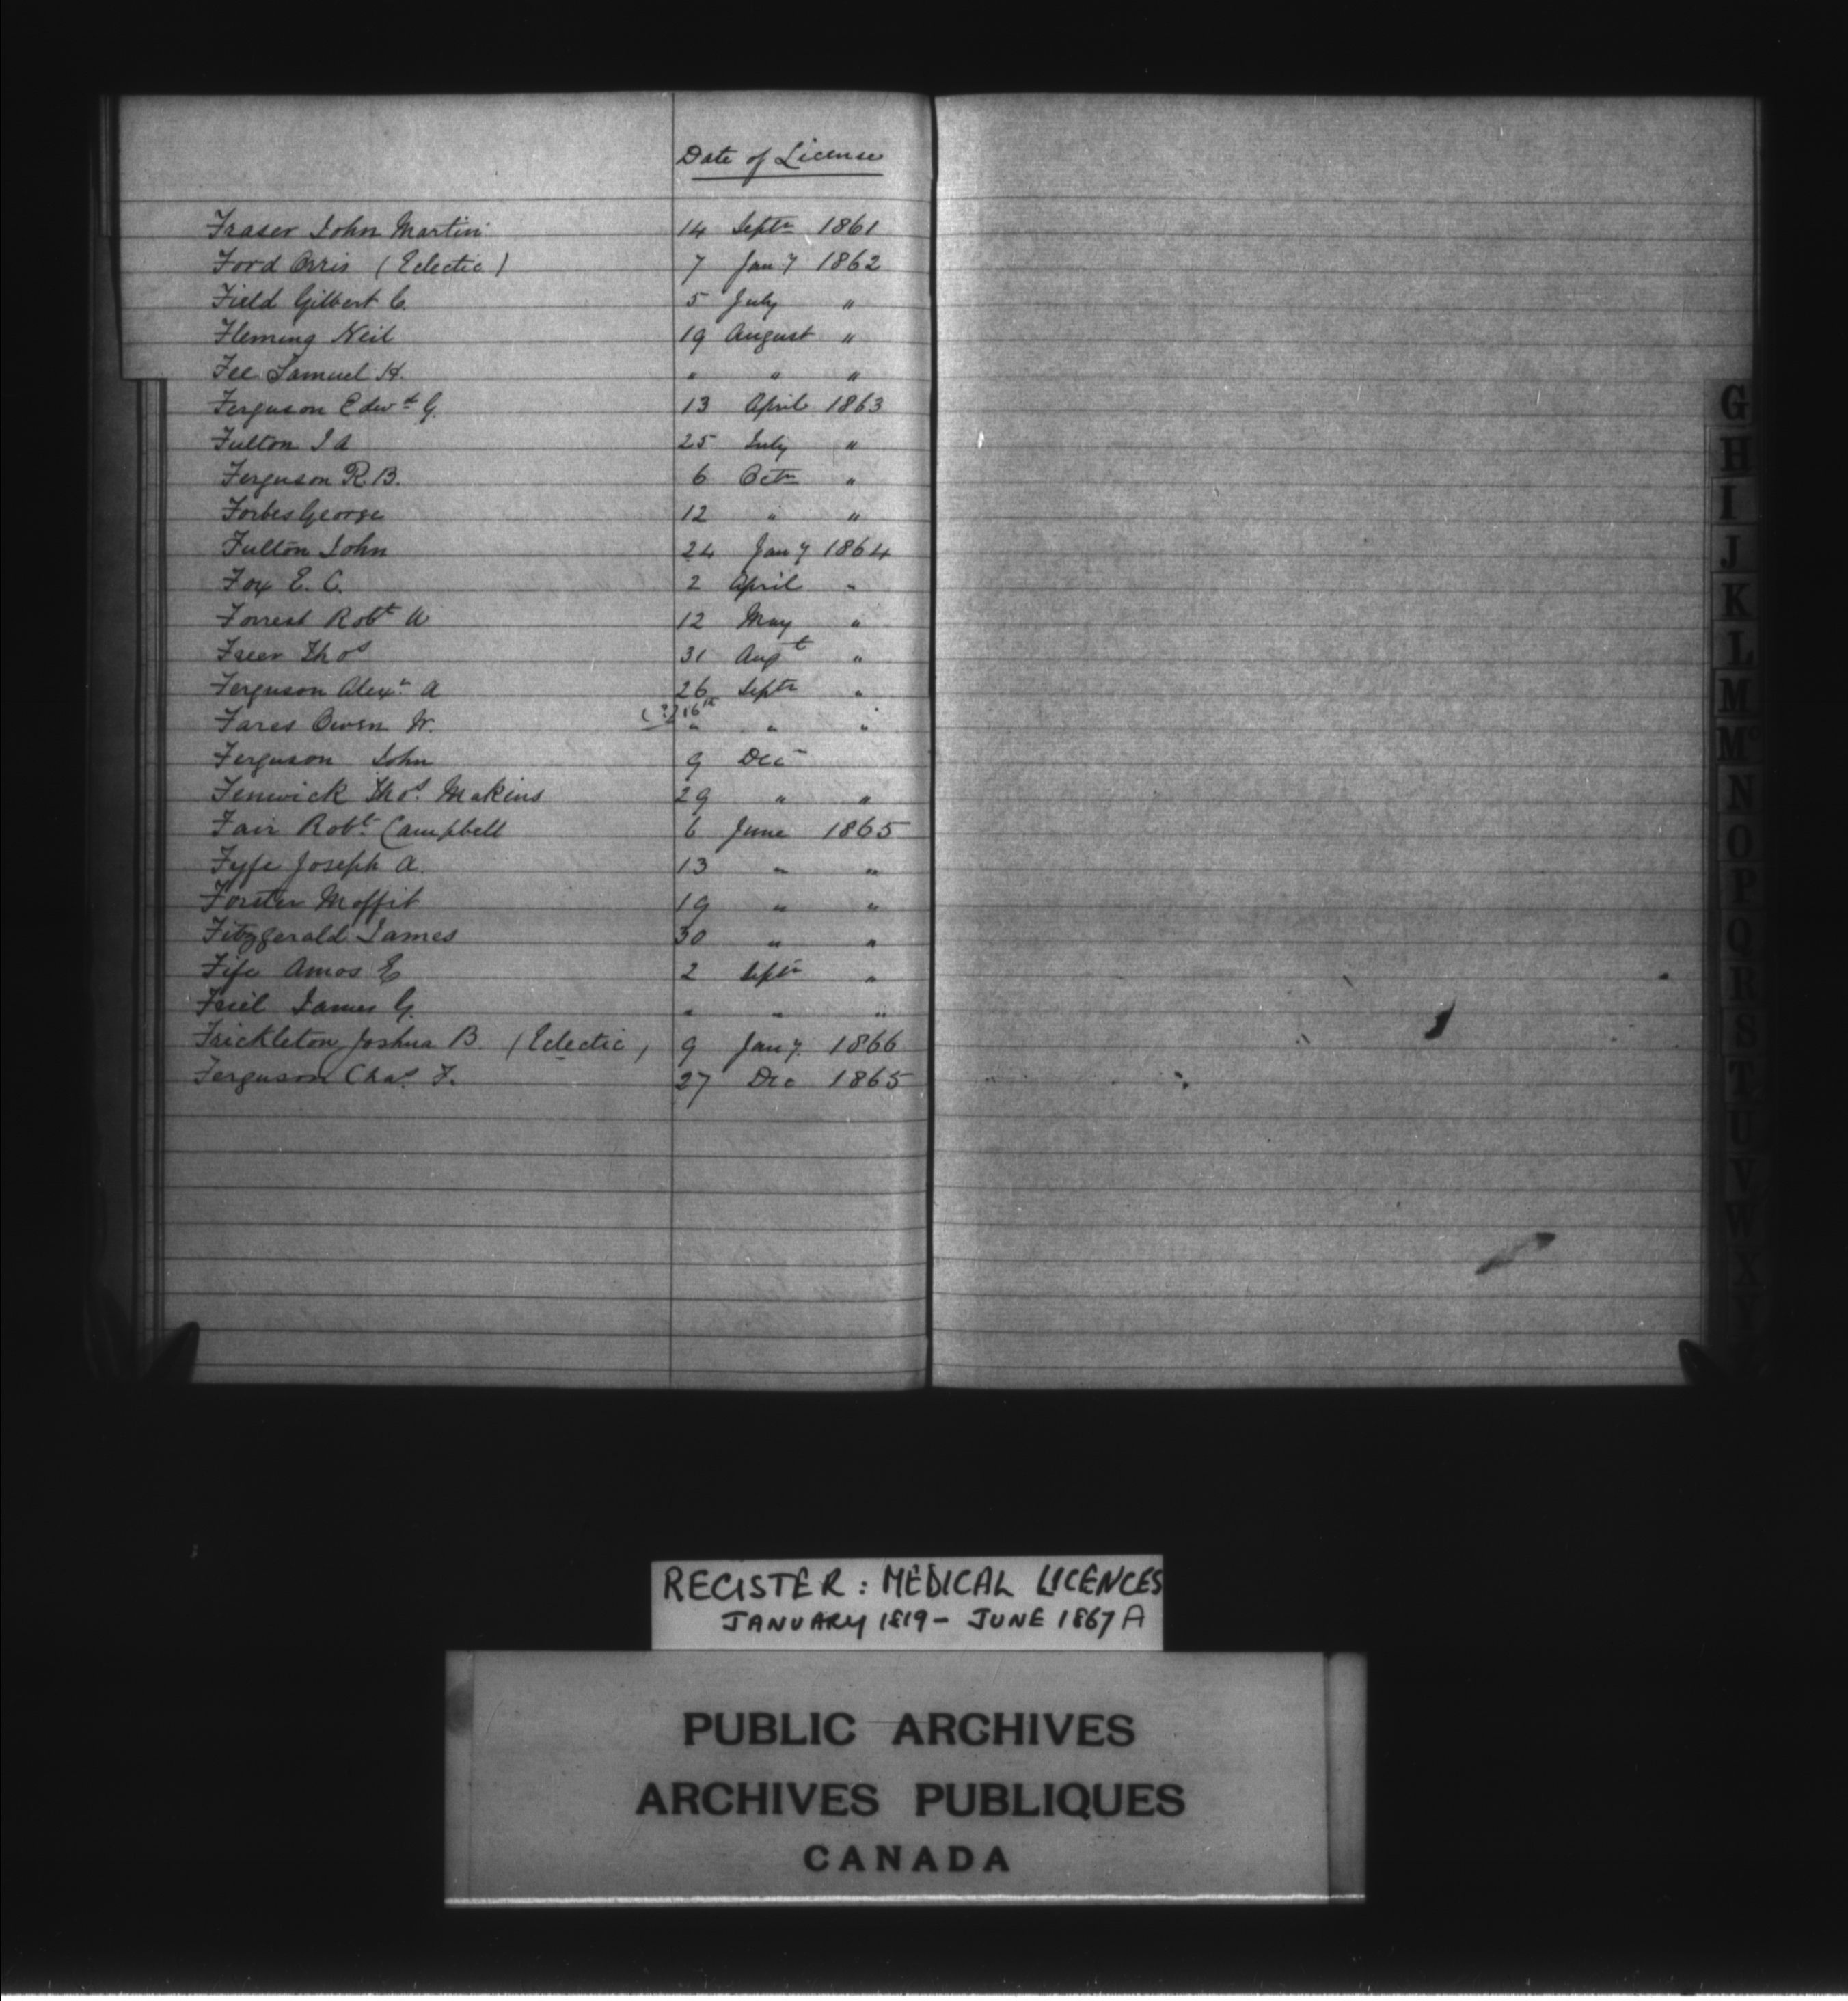 Date of License
Fraser John Martin 14 Septr 1861
Ford Orris (Eclectic) 7 Jany 1862
Field Gilbert C. 5 July "
Fleming Neil 19 August "
Fee Samuel H. " " "
Ferguson Edwd G. 13 April 1863
Fulton J A 25 July "
Ferguson R. B. 6 Octr "
Forbes George 12 " "
Fulton John 24 Jany 1864
Fox E. C. 2 April "
Forrest Robt W 12 May "
Freer Thos 31 Augt "
Ferguson Alexr A 26 Septr "
Fares Owen W. (?) 16th " " "
Ferguson John 9 Decr
Fenwick Thos. Makins 29 " "
Fair Robt. Campbell 6 June 1865
Fyfe Joseph A. 13 " "
Forster Moffit 19 " "
Fitzgerald James 30 " "
Fife Amos E 2 Septr "
Friel James G. " " "
Frickleton Joshua B. (Eclectic) 9 Jany. 1866
Ferguson Chas. F. 27 Dec 1865
G
H
I
J
K
L
M
Mc
N
O
P
Q
R
S
T
U
V
W
X
Y
REGISTER: MEDICAL LICENCES
JANUARY 1819 - JUNE 1867 A
PUBLIC ARCHIVES
ARCHIVES PUBLIQUES
CANADA